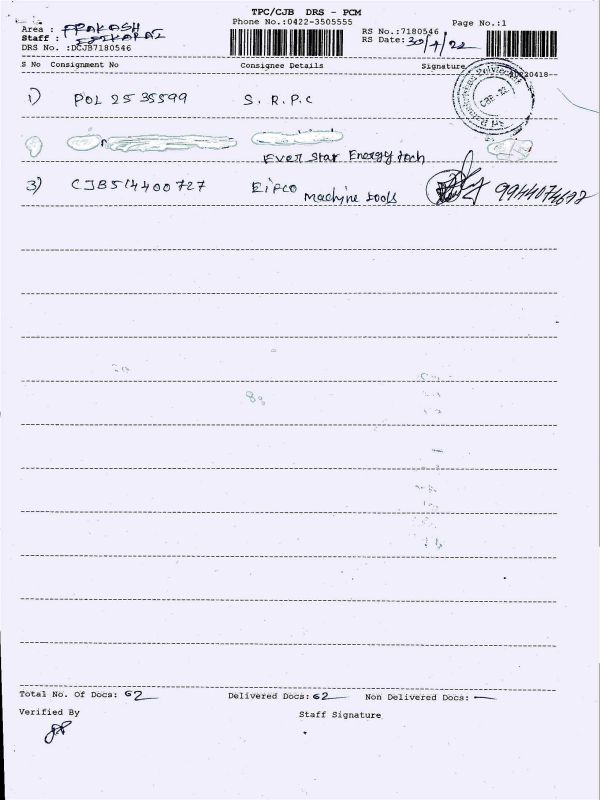 TPC/CJB DRS - PCM
Phone No.:0422-3505555 Page No.:1
Area : PRAKASH
Staff :
DRS No. :DCJB7180546
RS No.:7180546
RS Date: 30/4/22
S No Consignment No Consignee Details Signature
1) POL 2535599 S. R. P. C
Ever Star Energy Tech
3) CJB514400727 EIPCO Machine tools 9944074692
Total No. Of Docs: 62 Delivered Docs: 62 Non Delivered Docs: —
Verified By Staff Signature